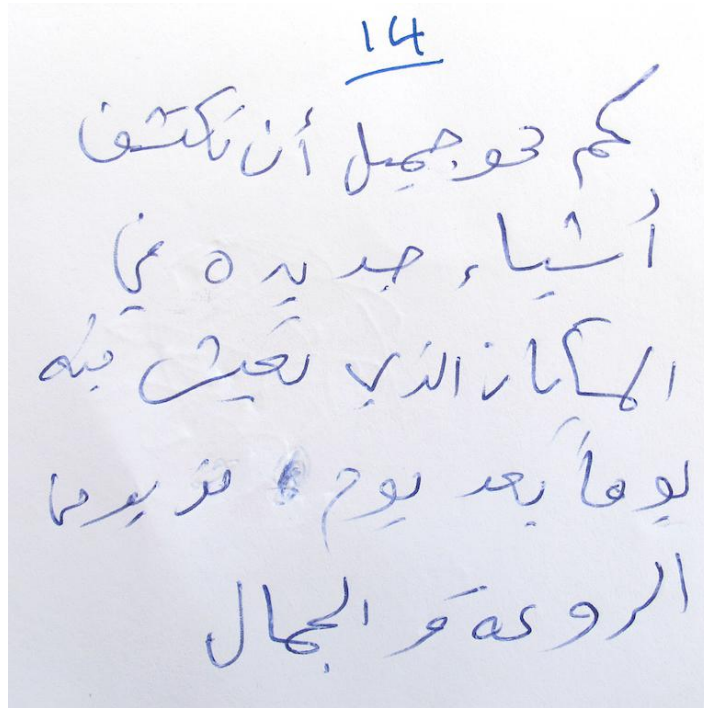 14
كم هو جميل أن نكتشف
أشياء جديده في
المكان الذي نعيش فيه
يوماً بعد يوم مزيد من
الروعه و الجمال